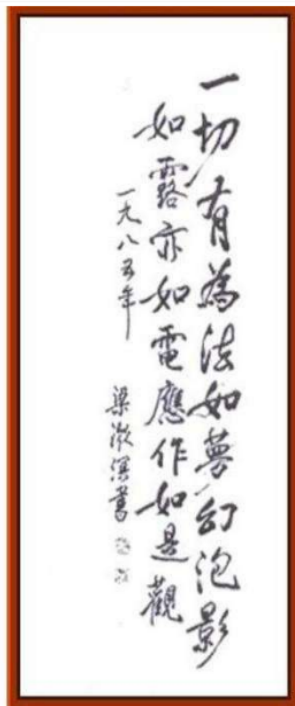 一切有為法如夢幻泡影
如露亦如電應作如是觀
一九八五年
梁漱溟書